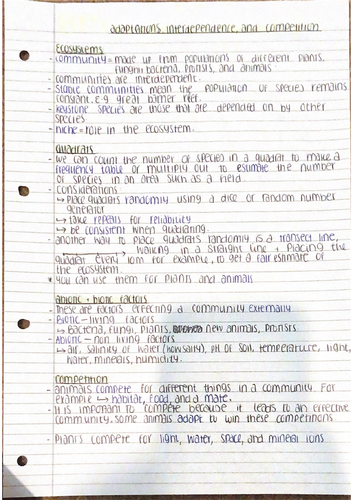 adaptations, interdependence, and competition
Ecosystems
- community = made up from populations of different plants,
fungi, bacteria, protists, and animals.
- communities are interdependent.
- stable communities mean the population of species remains
constant. e.g great barrier reef.
- keystone species are those that are depended on by other
species
- niche = role in the ecosystem.
Quadrats
- we can count the number of species in a quadrat to make a
frequency table or multiply out to estimate the number
of species in an area such as a field.
- considerations
↳ place quadrats randomly using a dice or random number
generator
↳ take repeats for reliability
↳ be consistent when quadrating.
- another way to place quadrats randomly is a transect line,
walking in a straight line + placing the
quadrat every 10m for example, to get a fair estimate of
the ecosystem.
* you can use them for plants and animals
abiotic + biotic factors
- These are factors effecting a community externally
- Biotic - living factors
↳ Bacteria, fungi, plants, new animals, protists.
- Abiotic - non living factors
↳ air, salinity of water (how salty), pH of soil, temperature, light,
water, minerals, humidity.
Competition
- animals compete for different things in a community. For
example ↳ habitat, food, and a mate.
- It is important to compete because it leads to an effective
community. some animals adapt to win these competitions.
- Plants compete for light, water, space, and mineral ions